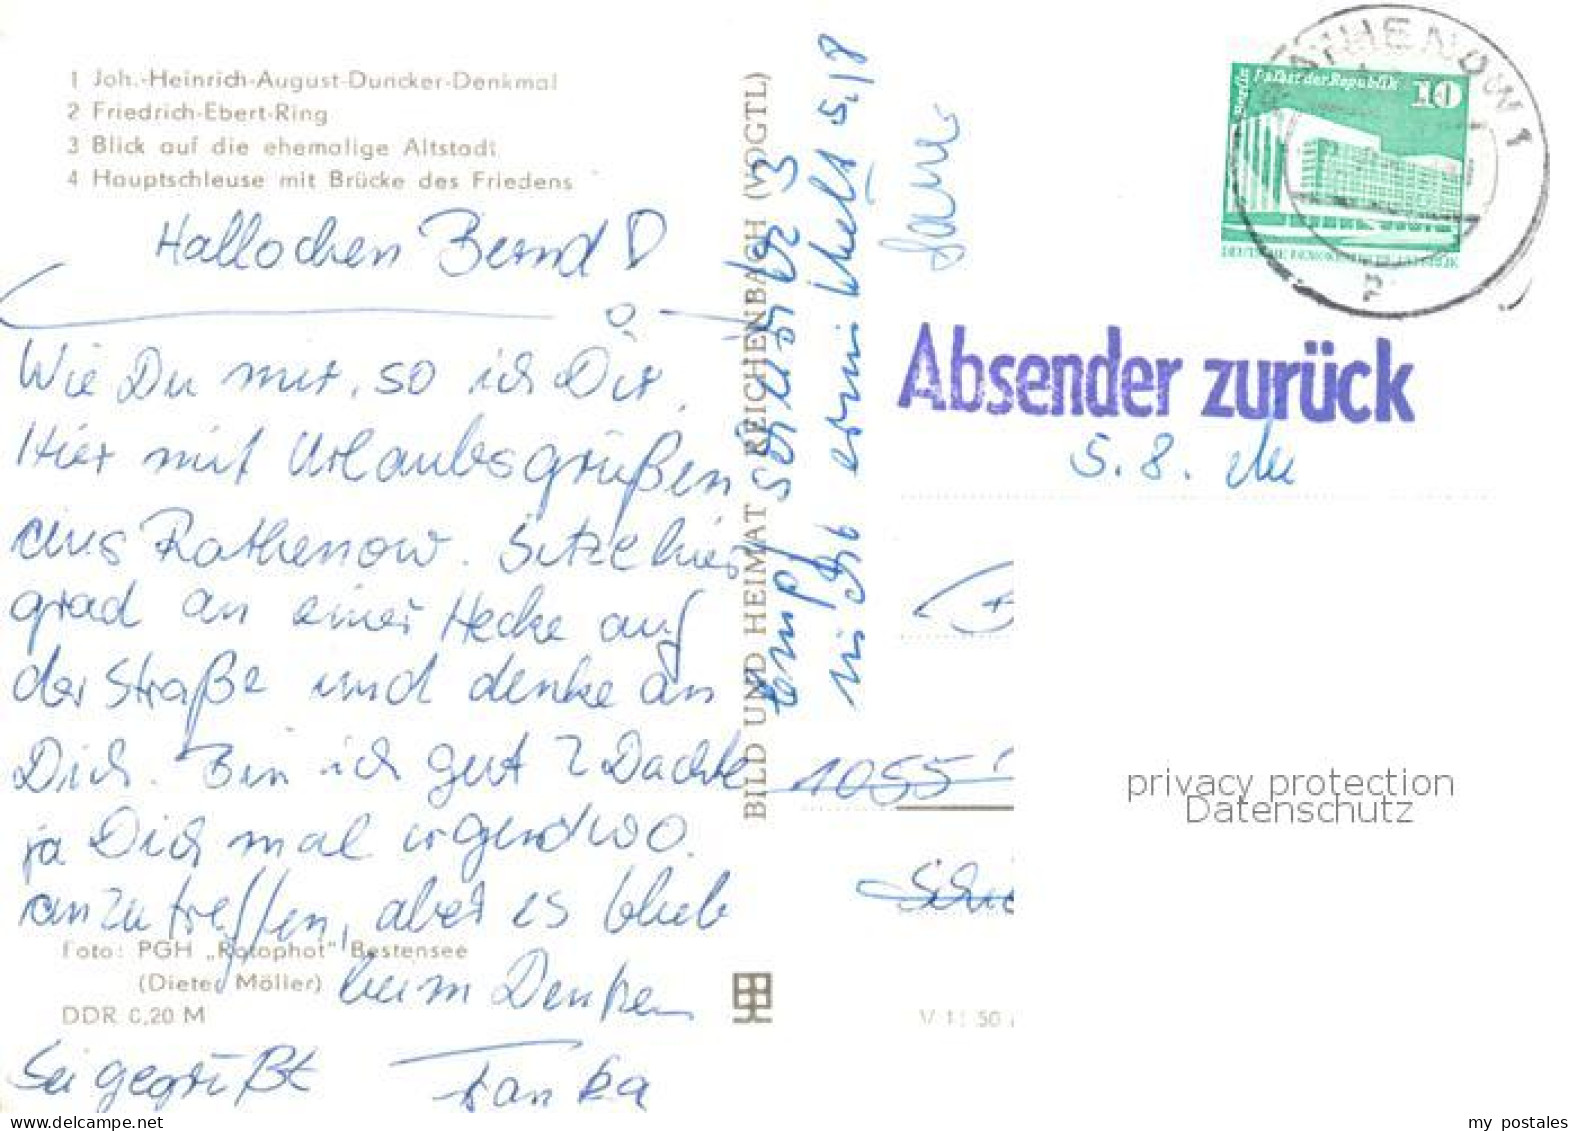 1 Joh.-Heinrich-August-Duncker-Denkmal
2 Friedrich-Ebert-Ring
3 Blick auf die ehemalige Altstadt
4 Hauptschleuse mit Brücke des Friedens
Hallochen Bernd!
Wie Du mir, so ich Dir.
Hier mit Urlaubsgrüßen
aus Rathenow. Sitze hier
grad an einer Hecke auf
der Straße und denke an
Dich. Bin ich gut? Dachte
ja Dich mal irgendwo
anzutreffen, aber es blieb
beim Denken
Sei gegrüßt
Foto: PGH „Rotophot" Bestensee
(Dieter Möller)
DDR 0,20 M
BILD UND HEIMAT REICHENBACH (VOGTL)
nicht ermittelt 5.18
Berlin Palast der Republik 10
DEUTSCHE DEMOKRATISCHE REPUBLIK
RATHENOW 1
Absender zurück
5.8.
1055
V 11 50
privacy protection
Datenschutz
www.delcampe.net
my_postales